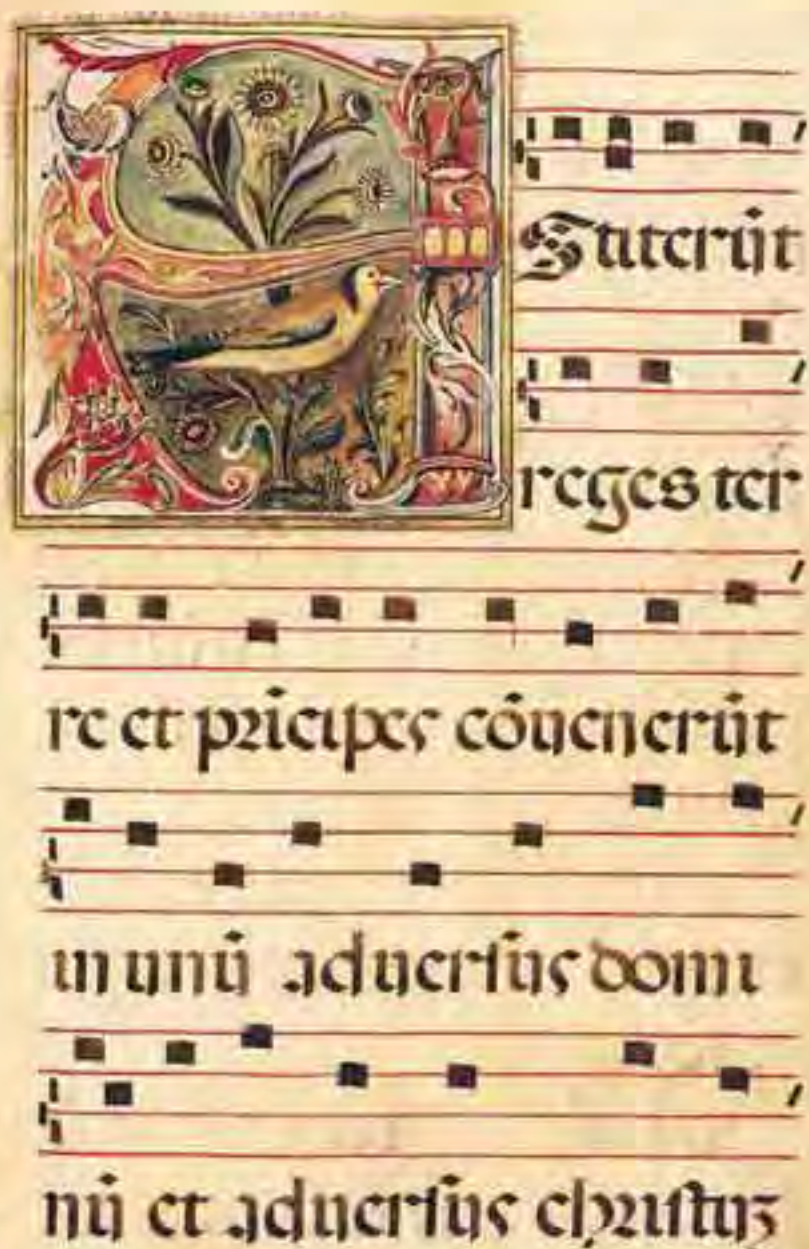 Stiterūt
reges ter
re et prīcipes cōuenerūt
in unū aduersus domi
nū et aduersus christuʒ